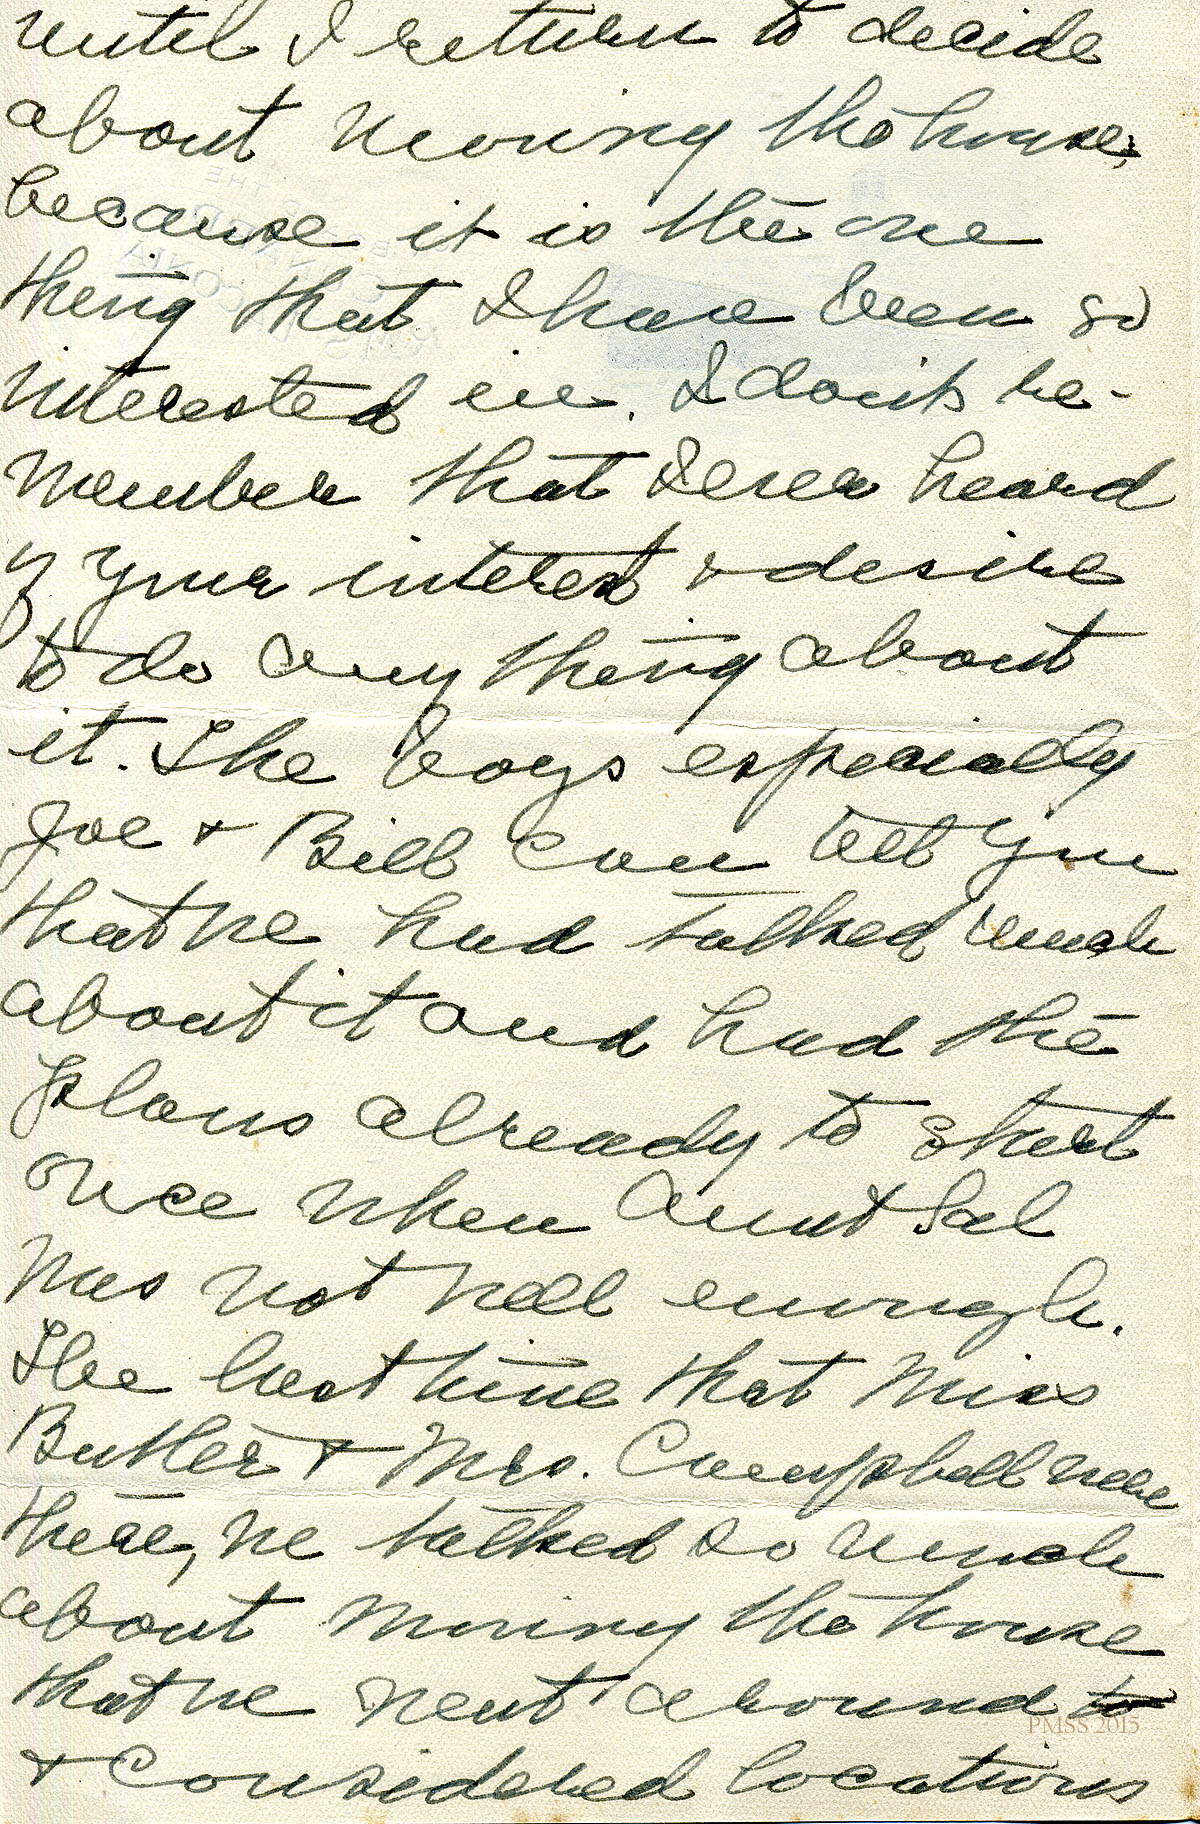 until I return to decide
about moving the house,
because it is the one
thing that I have been so
interested in. I don't re-
member that I ever heard
of your interest & desire
to do any thing about
it. The boys especially
Joe & Bill can tell you
that we had talked much
about it and had the
plans already to start
once when Aunt Sal
was not well enough.
The last time that Miss
Butler & Mrs. Campbell were
there, we talked so much
about moving the house
that we went around to
& considered locations
PMSS 2015